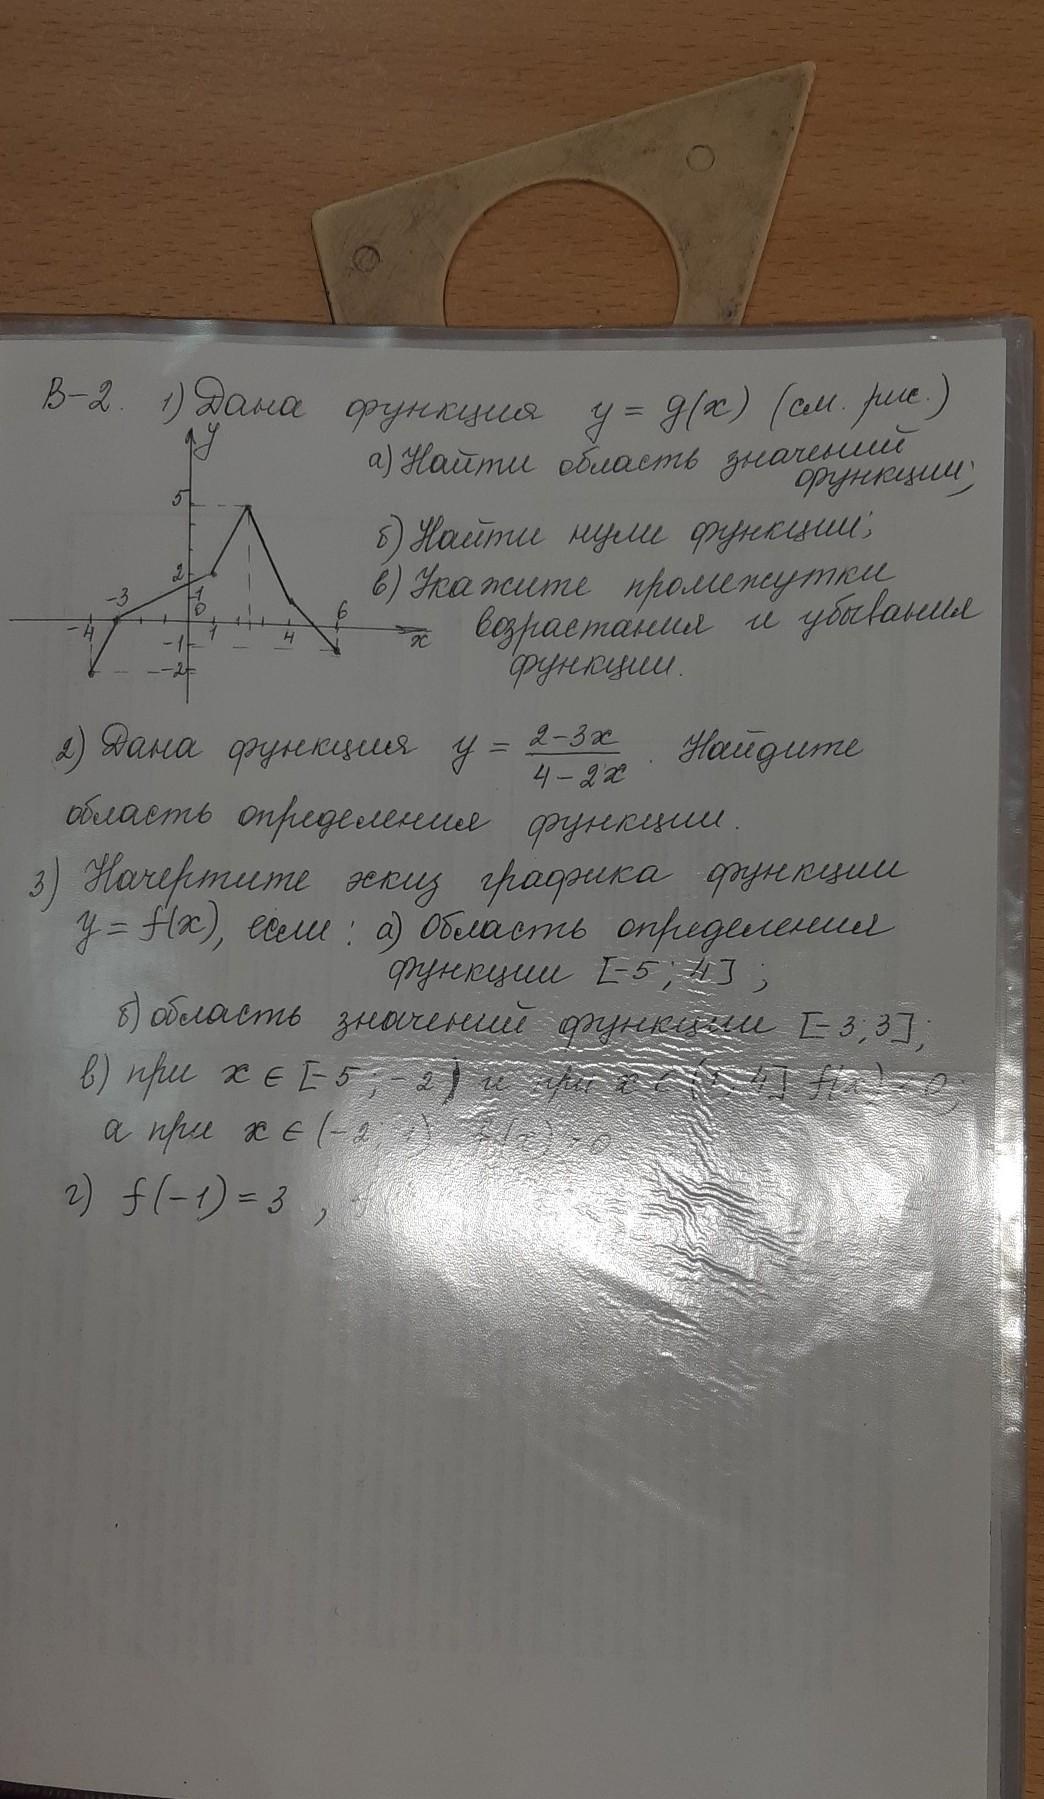 В-2. 1) Дана функция y = g(x) (см. рис.)
а) Найти область значений
функции;
б) Найти нули функции;
в) Укажите промежутки
возрастания и убывания
функции.
y
5
2
1
-3
0
6
-4
1
4
x
-1
-2
2) Дана функция y = (2-3x)/(4-2x). Найдите
область определения функции.
3) Начертите эскиз графика функции
y = f(x), если: а) Область определения
функции [-5; 4];
б) область значений функции [-3; 3];
в) при x ∈ [-5; -2) и при x ∈ (1; 4] f(x) < 0;
а при x ∈ (-2; 1) f(x) > 0
г) f(-1) = 3 , f